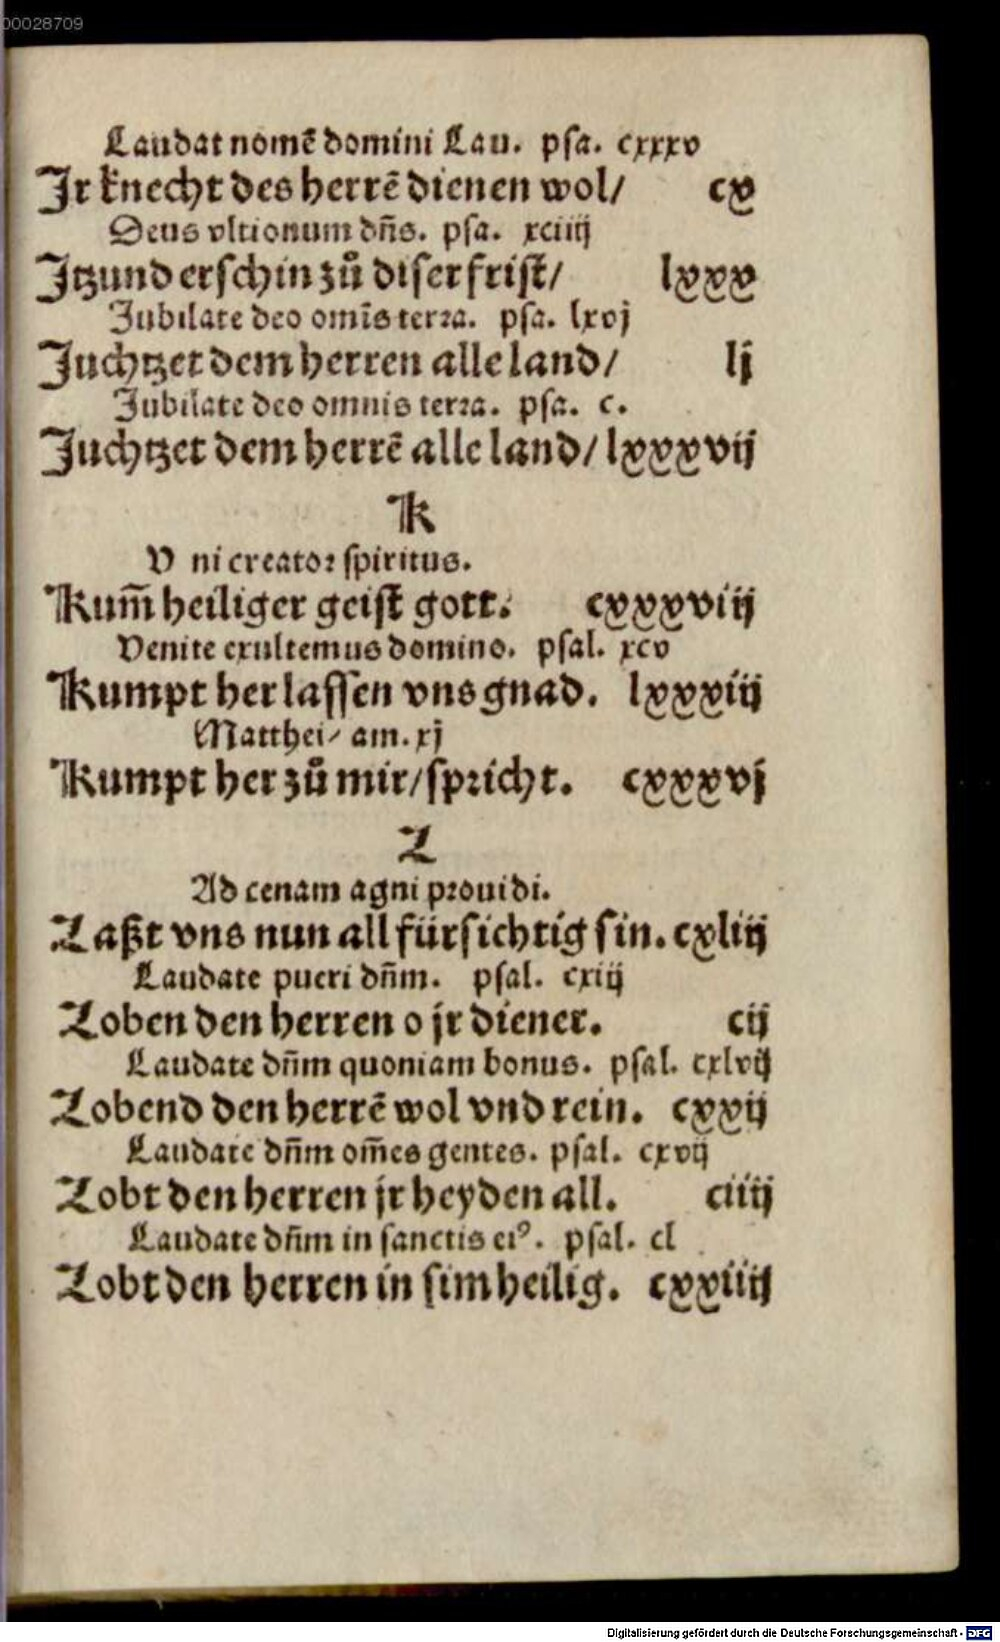 00028709
Laudat nomē domini Lau. psa. cxxxv
Jr knecht des herrē dienen wol/ cx
Deus vltionum dn̄s. psa. xciiij
Jtzund erschin zů diser frist/ lxxxv
Jubilate deo omīs terra. psa. lxvj
Juchtzet dem herren alle land/ lj
Jubilate deo omnis terra. psa. c.
Juchtzet dem herrē alle land/ lxxxvij
K
V ni creator spiritus.
Kum̄ heiliger geist gott. cxxxviij
Venite exultemus domino. psal. xcv
Kumpt her lassen vns gnad. lxxxiij
Matthei/ am. xj
Kumpt her zů mir/ spricht. cxxxvj
L
Ad cenam agni prouidi.
Laßt vns nun all fürsichtig sin. cxliij
Laudate pueri dn̄m. psal. cxiij
Loben den herren o jr diener. cij
Laudate dn̄m quoniam bonus. psal. cxlvij
Lobend den herrē wol vnd rein. cxxij
Laudate dn̄m om̄es gentes. psal. cxvij
Lobt den herren jr heyden all. ciiij
Laudate dn̄m in sanctis eiꝰ. psal. cl
Lobt den herren in sim heilig. cxxiiij
Digitalisierung gefördert durch die Deutsche Forschungsgemeinschaft - DFG